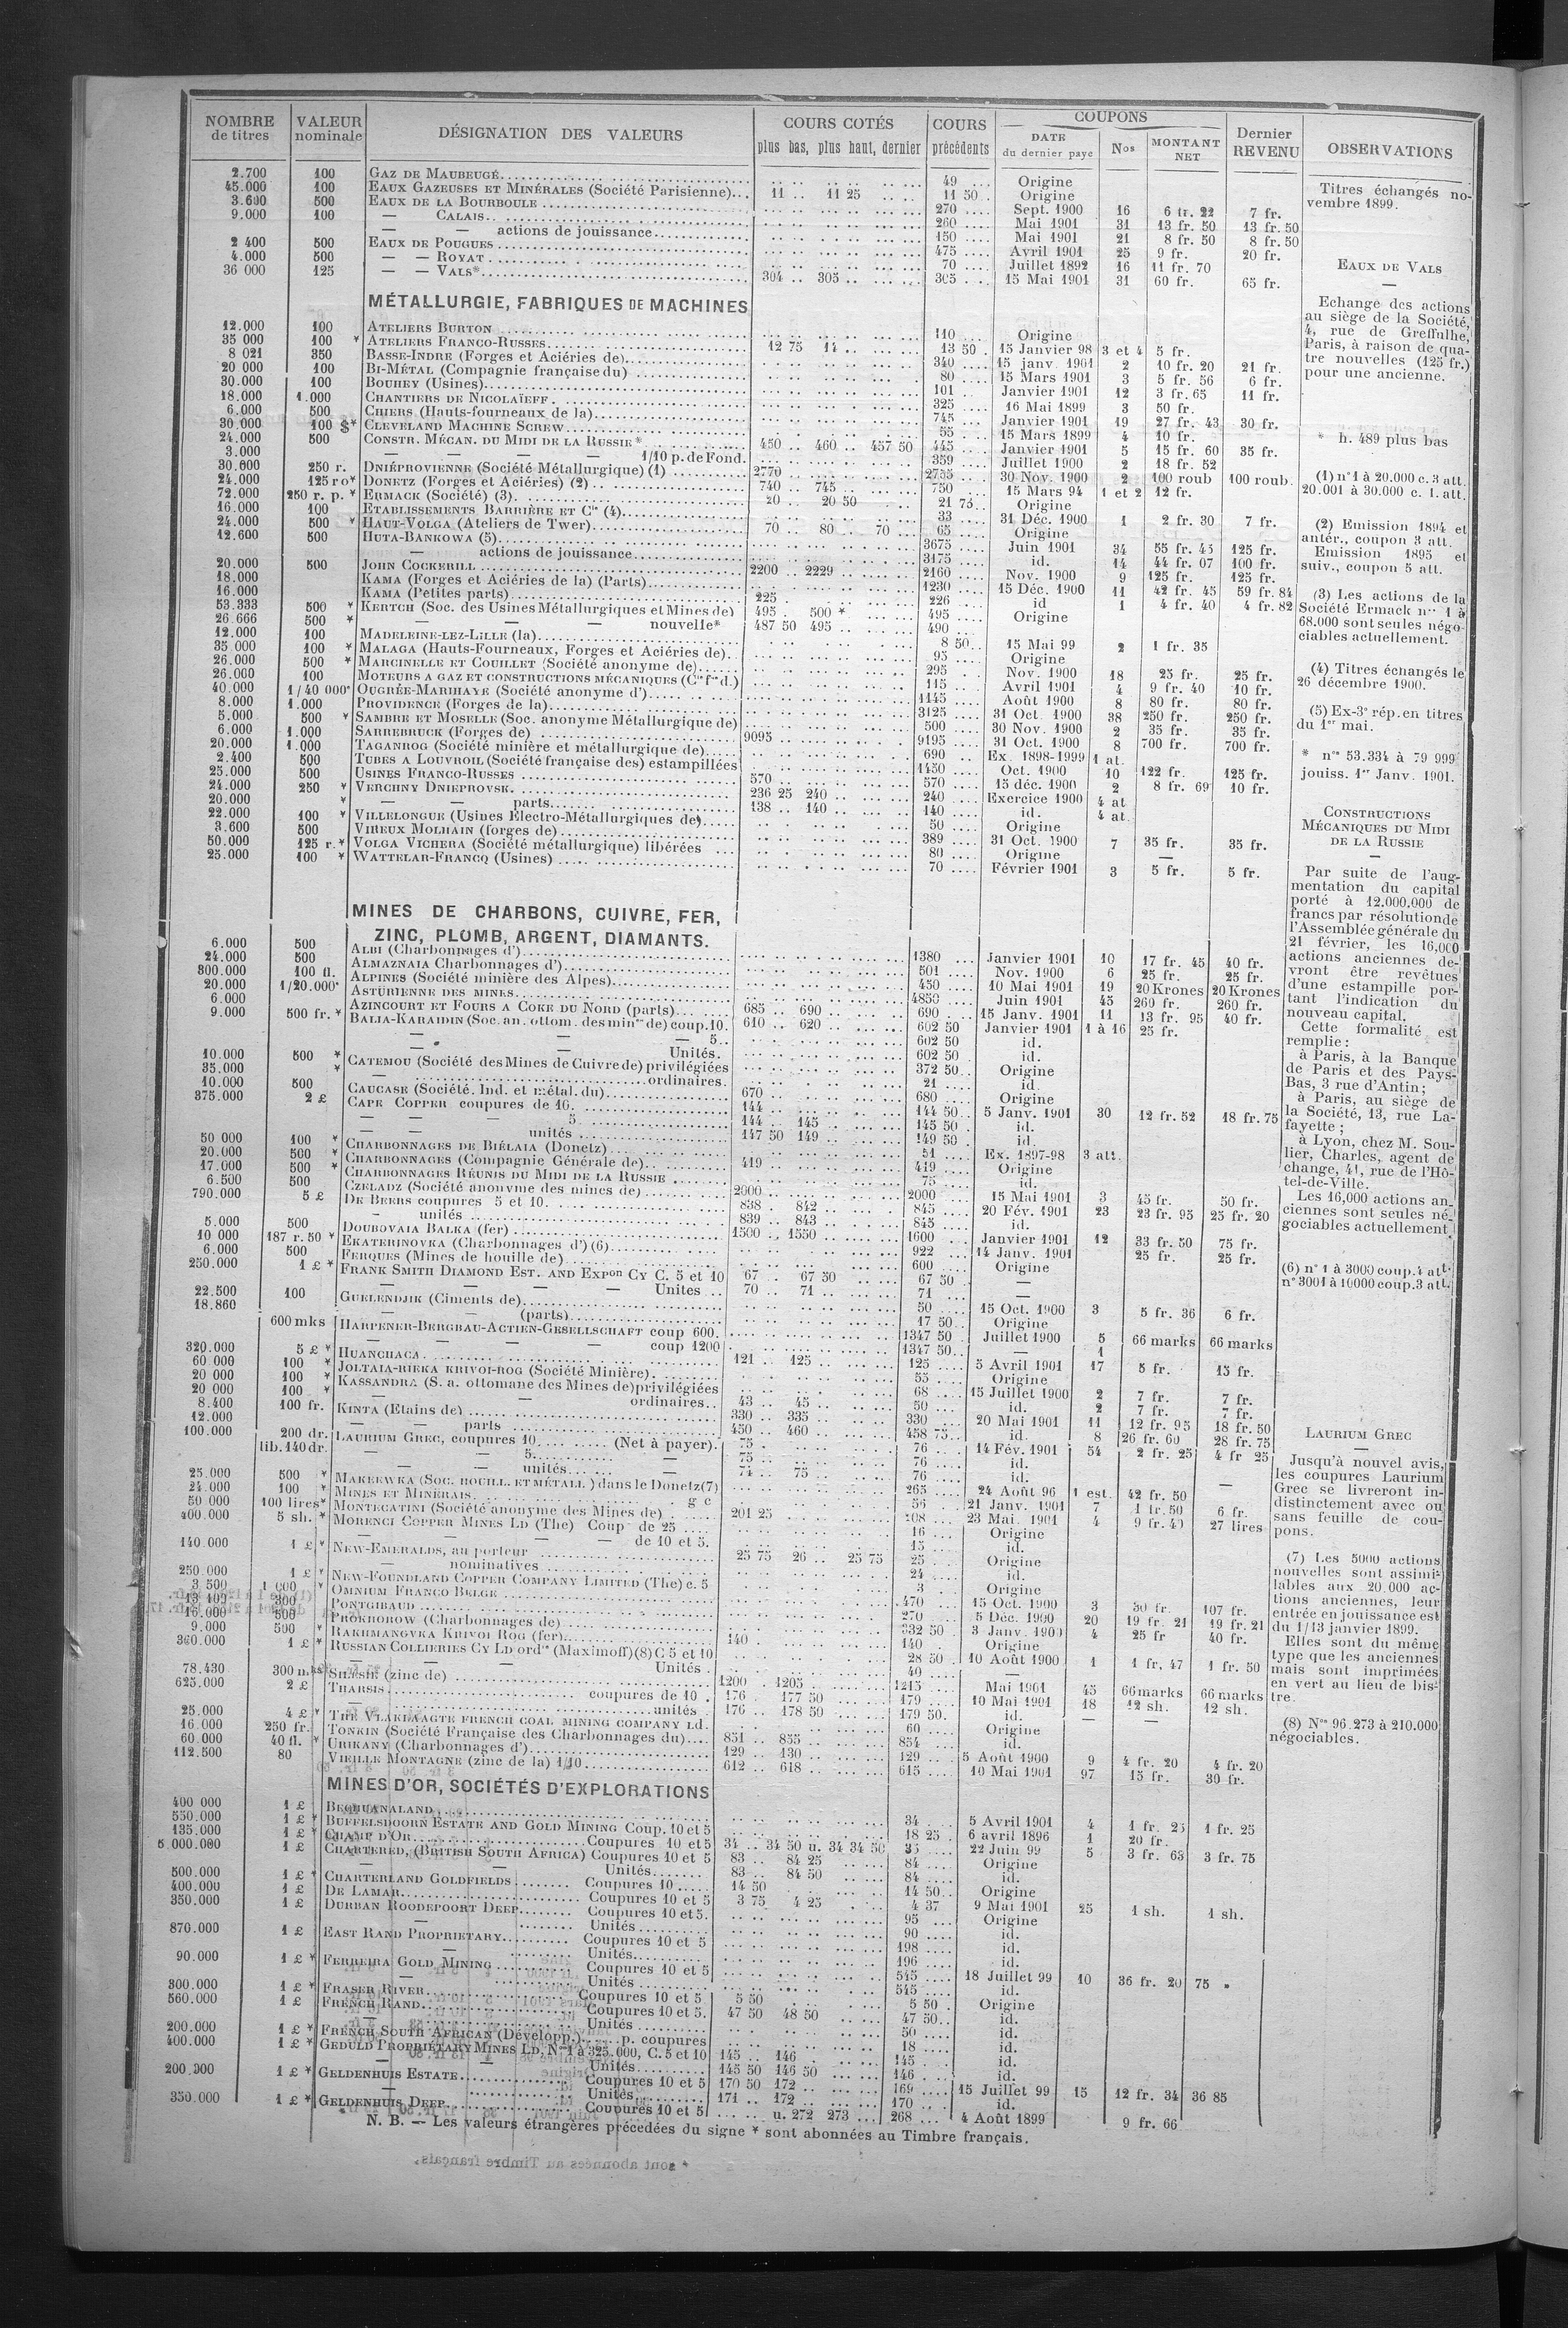 NOMBRE de titres | VALEUR nominale | DÉSIGNATION DES VALEURS | COURS COTÉS plus bas, plus haut, dernier | COURS précédents | COUPONS DATE du dernier payé | Nos | MONTANT NET | Dernier REVENU | OBSERVATIONS
2.700 100 GAZ DE MAUBEUGE 49 Origine
45.000 100 EAUX GAZEUSES ET MINÉRALES (Société Parisienne) 11 .. 11 25 11 50 Origine
3.600 500 EAUX DE LA BOURBOULE 270 Sept. 1900 16 6 fr. 22 7 fr.
9.000 100 — CALAIS 260 Mai 1901 31 13 fr. 50 13 fr. 50
— — actions de jouissance 150 Mai 1901 21 8 fr. 50 8 fr. 50
2 400 500 EAUX DE POUGUES 475 Avril 1901 25 9 fr. 20 fr.
4.000 500 — — ROYAT 70 Juillet 1892 16 11 fr. 70
36 000 125 — — VALS* 304 .. 305 .. 305 15 Mai 1901 31 60 fr. 65 fr.
MÉTALLURGIE, FABRIQUES DE MACHINES
12.000 100 ATELIERS BURTON 110 Origine
35 000 100 * ATELIERS FRANCO-RUSSES 12 75 14 .. 13 50 15 Janvier 98 3 et 4 5 fr.
8 021 350 BASSE-INDRE (Forges et Aciéries de) 340 15 janv. 1901 2 10 fr. 20 21 fr.
20 000 100 BI-MÉTAL (Compagnie française du) 80 15 Mars 1901 3 5 fr. 56 6 fr.
30.000 100 BOUHEY (Usines) 101 Janvier 1901 12 3 fr. 65 11 fr.
18.000 1.000 CHANTIERS DE NICOLAÏEFF 325 16 Mai 1899 3 50 fr.
6.000 500 CHIERS (Hauts-fourneaux de la) 745 Janvier 1901 19 27 fr. 43 30 fr.
30.000 100 $* CLEVELAND MACHINE SCREW 55 15 Mars 1899 4 10 fr.
24.000 500 CONSTR. MÉCAN. DU MIDI DE LA RUSSIE* 450 .. 460 .. 457 50 445 Janvier 1901 5 15 fr. 60 35 fr.
3.000 — — — — 1/10 p. de Fond. 359 Juillet 1900 2 18 fr. 52
30.600 250 r. DNIÉPROVIENNE (Société Métallurgique) (1) 2770 2755 30 Nov. 1900 2 100 roub 100 roub.
24.000 125 ro* DONETZ (Forges et Aciéries) (2) 740 .. 745 .. 750 15 Mars 94 1 et 2 12 fr.
72.000 250 r. p. * ERMACK (Société) (3) 20 .. 20 50 21 75 Origine
16.000 100 ETABLISSEMENTS BARRIÈRE ET Cie (4) 33 31 Déc. 1900 1 2 fr. 30 7 fr.
24.000 500 * HAUT-VOLGA (Ateliers de Twer) 70 .. 80 .. 70 .. 65 Origine
12.600 500 HUTA-BANKOWA (5) 3675 Juin 1901 34 55 fr. 45 125 fr.
— actions de jouissance 3175 id. 14 44 fr. 07 100 fr.
20.000 500 JOHN COCKERILL 2200 .. 2229 2160 Nov. 1900 9 125 fr. 125 fr.
18.000 KAMA (Forges et Aciéries de la) (Parts) 1230 15 Déc. 1900 11 42 fr. 45 59 fr. 84
16.000 KAMA (Petites parts) 225 226 id 1 4 fr. 40 4 fr. 82
53.333 500 * KERTCH (Soc. des Usines Métallurgiques et Mines de) 495 . 500 * 495 Origine
26.666 500 * — — — nouvelle* 487 50 495 .. 490
12.000 100 MADELEINE-LEZ-LILLE (la) 8 50 15 Mai 99 2 1 fr. 35
35 000 100 * MALAGA (Hauts-Fourneaux, Forges et Aciéries de) 95 Origine
26.000 500 * MARCINELLE ET COUILLET (Société anonyme de) 295 Nov. 1900 18 25 fr. 25 fr.
26.000 100 MOTEURS A GAZ ET CONSTRUCTIONS MÉCANIQUES (Cie fse d.) 115 Avril 1901 4 9 fr. 40 10 fr.
40.000 1/40 000e OUGRÉE-MARIHAYE (Société anonyme d') 1145 Août 1900 8 80 fr. 80 fr.
8.000 1.000 PROVIDENCE (Forges de la) 3125 31 Oct. 1900 38 250 fr. 250 fr.
5.000 500 * SAMBRE ET MOSELLE (Soc. anonyme Métallurgique de) 500 30 Nov. 1900 2 35 fr. 35 fr.
6.000 1.000 SARREBRUCK (Forges de) 9095 9195 31 Oct. 1900 8 700 fr. 700 fr.
20.000 1.000 TAGANROG (Société minière et métallurgique de) 690 Ex. 1898-1999 1 at.
2.400 500 TUBES A LOUVROIL (Société française des) estampillées 1450 Oct. 1900 10 122 fr. 125 fr.
25.000 500 USINES FRANCO-RUSSES 570 570 15 déc. 1900 2 8 fr. 69 10 fr.
24.000 250 * VERCHNY DNIEPROVSK 236 25 240 240 Exercice 1900 4 at
20.000 * — — parts 138 .. 140 140 id. 4 at.
22.000 100 * VILLELONGUE (Usines Electro-Métallurgiques de) 50 Origine
3.600 500 VIREUX MOLHAIN (forges de) 389 31 Oct. 1900 7 35 fr. 35 fr.
50.000 125 r.* VOLGA VICHERA (Société métallurgique) libérées 80 Origine —
25.000 100 * WATTELAR-FRANCQ (Usines) 70 Février 1901 3 5 fr. 5 fr.
MINES DE CHARBONS, CUIVRE, FER,
ZINC, PLOMB, ARGENT, DIAMANTS.
6.000 500 ALBI (Charbonnages d') 1380 Janvier 1901 10 17 fr. 45 40 fr.
24.000 500 ALMAZNAIA Charbonnages d') 501 Nov. 1900 6 25 fr. 25 fr.
800.000 100 fl. ALPINES (Société minière des Alpes) 450 10 Mai 1901 19 20 Krones 20 Krones
20.000 1/20.000e ASTURIENNE DES MINES 4850 Juin 1901 45 260 fr. 260 fr.
6.000 AZINCOURT ET FOURS A COKE DU NORD (parts) 685 .. 690 .. 690 15 Janv. 1901 11 13 fr. 95 40 fr.
9.000 500 fr. * BALIA-KARAIDIN (Soc. an. ottom. des mines de) coup. 10. 610 .. 620 .. 602 50 Janvier 1901 1 à 16 25 fr.
— — — 5.. 602 50 id.
— — Unités. 602 50 id.
10.000 500 * CATEMOU (Société des Mines de Cuivre de) privilégiées 372 50 Origine
35.000 * — ordinaires. 21 id.
10.000 500 CAUCASE (Société. Ind. et métal. du) 670 680 Origine
375.000 2 £ CAPE COPPER coupures de 10. 144 144 50 5 Janv. 1901 30 12 fr. 52 18 fr. 75
— — 5 144 .. 145 .. 145 50 id.
— — unités 147 50 149 149 50 id.
50 000 100 * CHARBONNAGES DE BIÉLAIA (Donetz) 51 Ex. 1897-98 3 att.
20.000 500 * CHARBONNAGES (Compagnie Générale de) 419 419 Origine
17.000 500 * CHARBONNAGES RÉUNIS DU MIDI DE LA RUSSIE 75 id.
6.500 500 CZELADZ (Société anonyme des mines de) 2000 2000 15 Mai 1901 3 45 fr. 50 fr.
790.000 5 £ DE BEERS coupures 5 et 10. 838 . 842 845 20 Fév. 1901 23 23 fr. 95 25 fr. 20
— unités 839 .. 843 .. 845 id.
5.000 500 DOUBOVAIA BALKA (fer) 1500 .. 1550 1600 Janvier 1901 12 33 fr. 50 75 fr.
10 000 187 r. 50 * EKATERINOVKA (Charbonnages d') (6) 922 14 Janv. 1901 25 fr. 25 fr.
6.000 500 FERQUES (Mines de houille de) 600 Origine
250.000 1 £ * FRANK SMITH DIAMOND EST. AND EXPon CY C. 5 et 10 67 .. 67 50 67 50 —
— — Unités 70 .. 71 .. 71 —
22.500 100 GUELENDJIK (Ciments de) 50 15 Oct. 1900 3 5 fr. 36 6 fr.
18.860 — (parts) 17 50 Origine
600 mks HARPENER-BERGBAU-ACTIEN-GESELLSCHAFT coup 600. 1347 50 Juillet 1900 5 66 marks 66 marks
— — — coup 1200 1347 50 — 1
320.000 5 £ * HUANCHACA 121 .. 125 .. 125 5 Avril 1901 17 5 fr. 15 fr.
60 000 100 * JOLTAIA-RIEKA KRIVOI-ROG (Société Minière) 55 Origine
20 000 100 * KASSANDRA (S. a. ottomane des Mines de) privilégiées 68 15 Juillet 1900 2 7 fr. 7 fr.
20 000 100 * ordinaires.. 43 .. 45 .. 50 id. 2 7 fr. 7 fr.
8.400 100 fr. KINTA (Etains de) 330 .. 335 .. 330 20 Mai 1901 11 12 fr. 95 18 fr. 50
12.000 — — parts 450 .. 460 .. 458 75 id. 8 26 fr. 60 28 fr. 75
100.000 200 dr. lib. 140 dr. LAURIUM GREC, coupures 10 (Net à payer). 75 76 14 Fév. 1901 54 2 fr. 25 4 fr 25
— — 5 — 75 76 id.
— — unités — 74 .. 75 .. 76 id.
25.000 500 * MAKEEWKA (SOC. HOUILL. ET MÉTALL.) dans le Donetz (7) 265 24 Août 96 1 est. 42 fr. 50 —
24.000 100 * MINES ET MINERAIS 56 21 Janv. 1901 7 1 fr. 50 6 fr.
50 000 100 lires* MONTECATINI (Société anonyme des Mines de) 201 25 208 23 Mai. 1901 4 9 fr. 40 27 lires
400.000 5 sh. * MORENCI COPPER MINES LD (The) Coup de 25 16 Origine
— — de 10 et 5. 15 id.
140.000 1 £ * NEW-EMERALDS, au porteur 25 75 26 .. 25 75 25 Origine
— nominatives 24 id.
250.000 1 £ * NEW-FOUNDLAND COPPER COMPANY LIMITED (The) c. 5 3 Origine
3 500 1 000 * OMNIUM FRANCO BELGE 470 15 Oct. 1900 3 30 fr. 107 fr.
13 109 300 PONTGIBAUD 270 5 Déc. 1900 20 19 fr. 21 19 fr. 21
16.000 500 PROKHOROW (Charbonnages de) 332 50 3 Janv. 1900 4 25 fr 40 fr.
9.000 500 * RAKHMANOVKA KRIVOI ROG (fer) 140 140 Origine
360.000 1 £ * RUSSIAN COLLIERIES CY LD ordres (Maximoff) (8) C 5 et 10 28 50 10 Août 1900 1 1 fr. 47 1 fr. 50
— — — Unités 40 —
78.430 300 mks* SILESIE (zinc de) 1200 . 1205 1215 Mai 1901 45 66 marks 66 marks
625.000 2 £ THARSIS coupures de 10 176 . 177 50 179 10 Mai 1901 18 12 sh. 12 sh.
unités 176 .. 178 50 179 50 id. — —
25.000 4 £ * THE VLAKLAAGTE FRENCH COAL MINING COMPANY Ld. 60 Origine
16.000 250 fr. TONKIN (Société Française des Charbonnages du) 851 .. 855 .. 854 id.
60.000 40 fl. * URIKANY (Charbonnages d') 129 .. 130 129 5 Août 1900 9 4 fr. 20 4 fr. 20
112.500 80 VIEILLE MONTAGNE (zinc de la) 1/10 612 .. 618 .. 615 10 Mai 1901 97 15 fr. 30 fr.
MINES D'OR, SOCIÉTÉS D'EXPLORATIONS
400 000 1 £ BECHUANALAND 34 5 Avril 1901 4 1 fr. 25 1 fr. 25
550.000 1 £ * BUFFELSDOORN ESTATE AND GOLD MINING Coup. 10 et 5 18 25 6 avril 1896 1 20 fr.
135.000 1 £ * CHAMP D'OR Coupures 10 et 5 34 .. 34 50 u. 34 34 50 35 22 Juin 99 5 3 fr. 65 3 fr. 75
5 000.000 1 £ CHARTERED, (BRITISH SOUTH AFRICA) Coupures 10 et 5 83 .. 84 25 84 Origine
— — Unités 83 .. 84 50 84 id.
500.000 1 £ * CHARTERLAND GOLDFIELDS Coupures 10 14 50 14 50 Origine
400.000 1 £ DE LAMAR Coupures 10 et 5 3 75 4 25 4 37 9 Mai 1901 25 1 sh. 1 sh.
350.000 1 £ DURBAN ROODEPOORT DEEP Coupures 10 et 5. 95 Origine
— Unités 90 id.
870.000 1 £ EAST RAND PROPRIETARY Coupures 10 et 5 198 id.
— Unités 196 id.
90.000 1 £ * FERREIRA GOLD MINING Coupures 10 et 5 545 18 Juillet 99 10 36 fr. 20 75 »
— Unités 545 id.
300.000 1 £ * FRASER RIVER Coupures 10 et 5 5 50 5 50 Origine
560.000 1 £ FRENCH RAND Coupures 10 et 5. 47 50 48 50 47 50 id.
— Unités 50 id.
200.000 1 £ * FRENCH SOUTH AFRICAN (Développ.) p. coupures 18 id.
400.000 1 £ * GEDULD PROPRIETARY MINES LD, Nos 1 à 325.000, C. 5 et 10 145 .. 146 145 id.
— — Unités 145 50 146 50 146 id.
200.000 1 £ * GELDENHUIS ESTATE Coupures 10 et 5 170 50 172 .. 169 15 Juillet 99 15 12 fr. 34 36 85
— Unités 171 .. 172 .. 170 id.
350.000 1 £ * GELDENHUIS DEEP Coupures 10 et 5 u. 272 273 268 4 Août 1899 9 fr. 66
N. B. — Les valeurs étrangères précédées du signe * sont abonnées au Timbre français.
Titres échangés novembre 1899.
EAUX DE VALS
—
Echange des actions
au siège de la Société,
4, rue de Greffulhe,
Paris, à raison de qua-
tre nouvelles (125 fr.)
pour une ancienne.
* h. 489 plus bas
(1) n° 1 à 20.000 c. 3 att.
20.001 à 30.000 c. 1. att.
(2) Emission 1894 et
antér., coupon 3 att.
Emission 1895 et
suiv., coupon 5 att.
(3) Les actions de la
Société Ermack nos 1 à
68.000 sont seules négo-
ciables actuellement.
(4) Titres échangés le
26 décembre 1900.
(5) Ex-3e rép. en titres
du 1er mai.
* nos 53.334 à 79 999
jouiss. 1er Janv. 1901.
CONSTRUCTIONS
MÉCANIQUES DU MIDI
DE LA RUSSIE
—
Par suite de l'aug-
mentation du capital
porté à 12.000.000 de
francs par résolution de
l'Assemblée générale du
21 février, les 16,000
actions anciennes de-
vront être revêtues
d'une estampille por-
tant l'indication du
nouveau capital.
Cette formalité est
remplie :
à Paris, à la Banque
de Paris et des Pays-
Bas, 3 rue d'Antin;
à Paris, au siège de
la Société, 13, rue La-
fayette ;
à Lyon, chez M. Sou-
lier, Charles, agent de
change, 41, rue de l'Hô-
tel-de-Ville.
Les 16,000 actions an-
ciennes sont seules né-
gociables actuellement.
(6) n° 1 à 3000 coup. 4 att.
n° 3001 à 10000 coup. 3 att.
LAURIUM GREC
—
Jusqu'à nouvel avis,
les coupures Laurium
Grec se livreront in-
distinctement avec ou
sans feuille de cou-
pons.
(7) Les 5000 actions
nouvelles sont assimi-
lables aux 20.000 ac-
tions anciennes, leur
entrée en jouissance est
du 1/13 janvier 1899.
Elles sont du même
type que les anciennes
mais sont imprimées
en vert au lieu de bis-
tre.
(8) Nos 96.273 à 210.000
négociables.